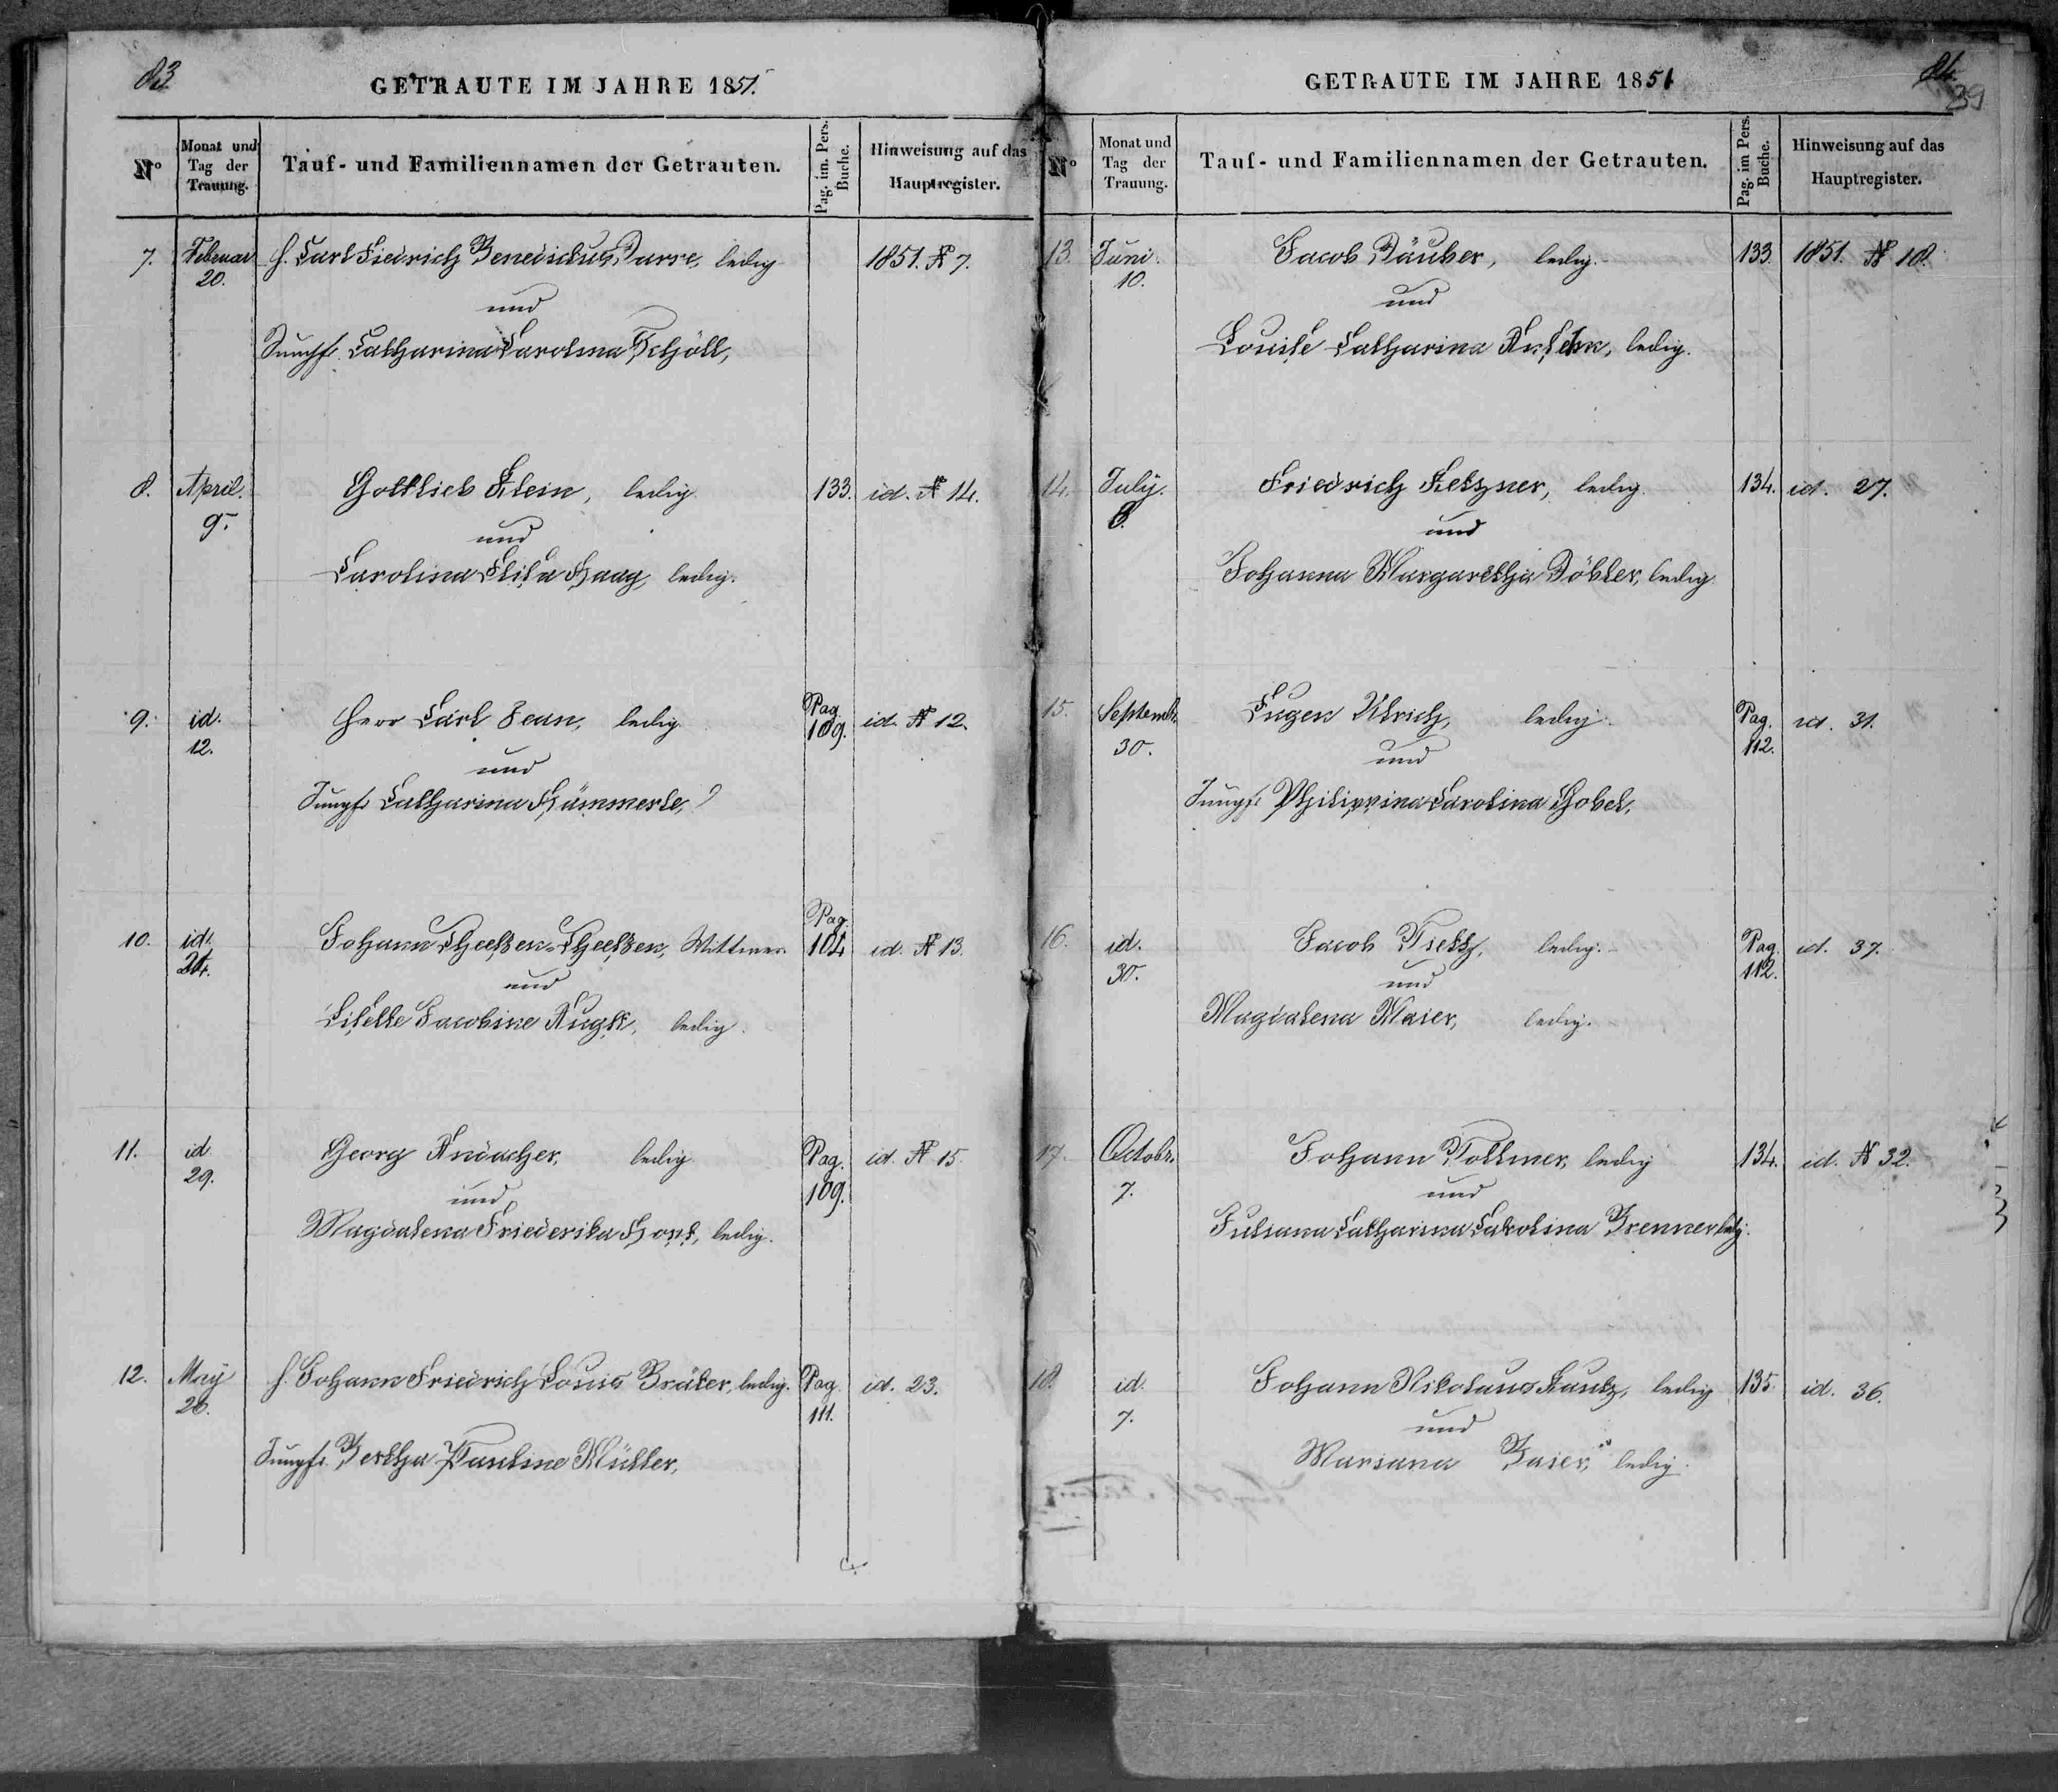 83.
GETRAUTE IM JAHRE 1851.
No
Monat und Tag der Trauung.
Tauf- und Familiennamen der Getrauten.
Pag. im Pers. Buche.
Hinweisung auf das Hauptregister.
7. Februar H. Carl Friedrich Benedictus ledig 1851. N 7.
20.
und
Jungfr. Catharina Carolina Schöll,
8. April. Gottlieb Klein, ledig. 133. id. N 14.
9.
und
Carolina Elisa Haag, ledig.
9. id. Herr Carl Jean, ledig. Pag. 109. id. N 12.
12.
und
Jungfr. Catharina Hämmerle,
10. id. Johann Theessen-Theessen, Wittwer. Pag. 104 id. N 13.
24.
und
Lisette Jacobine ledig.
11. id. Georg Andacher, ledig. Pag. 109. id. N 15.
29.
und
Magdalena Friederika ledig.
12. May H. Johann Friedrich Louis Bräter, ledig. Pag. 111. id. 23.
26.
Jungfr. Bertha Pauline Müller,
GETRAUTE IM JAHRE 1851
84.
39
No
Monat und Tag der Trauung.
Tauf- und Familiennamen der Getrauten.
Pag. im Pers. Buche.
Hinweisung auf das Hauptregister.
13. Juni. Jacob Däuber, ledig. 133. 1851. N 18.
10.
und
Louise Catharina ledig.
14. July. Friedrich Ketzner, ledig. 134. id. 27.
8.
und
Johanna Margaretha Döbler, ledig.
15. Septemb. Eugen Ulrich, ledig. Pag. 112. id. 31.
30.
und
Jungfr. Philippina Carolina Gobel,
16. id. Jacob Dietz, ledig. Pag. 112. id. 37.
30.
und
Magdalena Maier, ledig.
17. Octobr. Johann Vollmer, ledig 134. id. N 32.
7.
und
Juliana Catharina Carolina Brenner ledig.
18. id. Johann Nikolaus Kautz, ledig 135. id. 36.
7.
und
Mariana Baier, ledig.